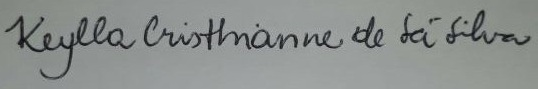 Keylla Cristhianne de Sá Silva